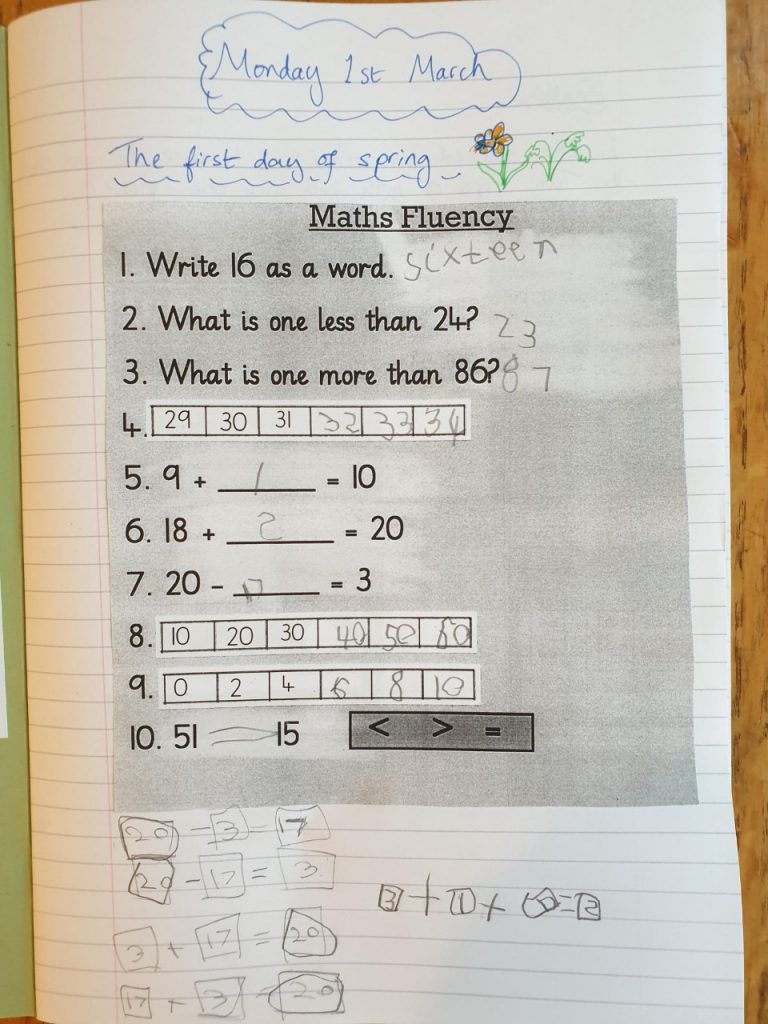 Monday 1st March
The first day of spring
Maths Fluency
1. Write 16 as a word. sixteen
2. What is one less than 24? 23
3. What is one more than 86? 87
4. 29 30 31 32 33 34
5. 9 + 1 = 10
6. 18 + 2 = 20
7. 20 - 17 = 3
8. 10 20 30 40 50 60
9. 0 2 4 6 8 10
10. 51 > 15 < > =
20 - 3 = 17
20 - 17 = 3
3 + 17 = 20
17 + 3 = 20